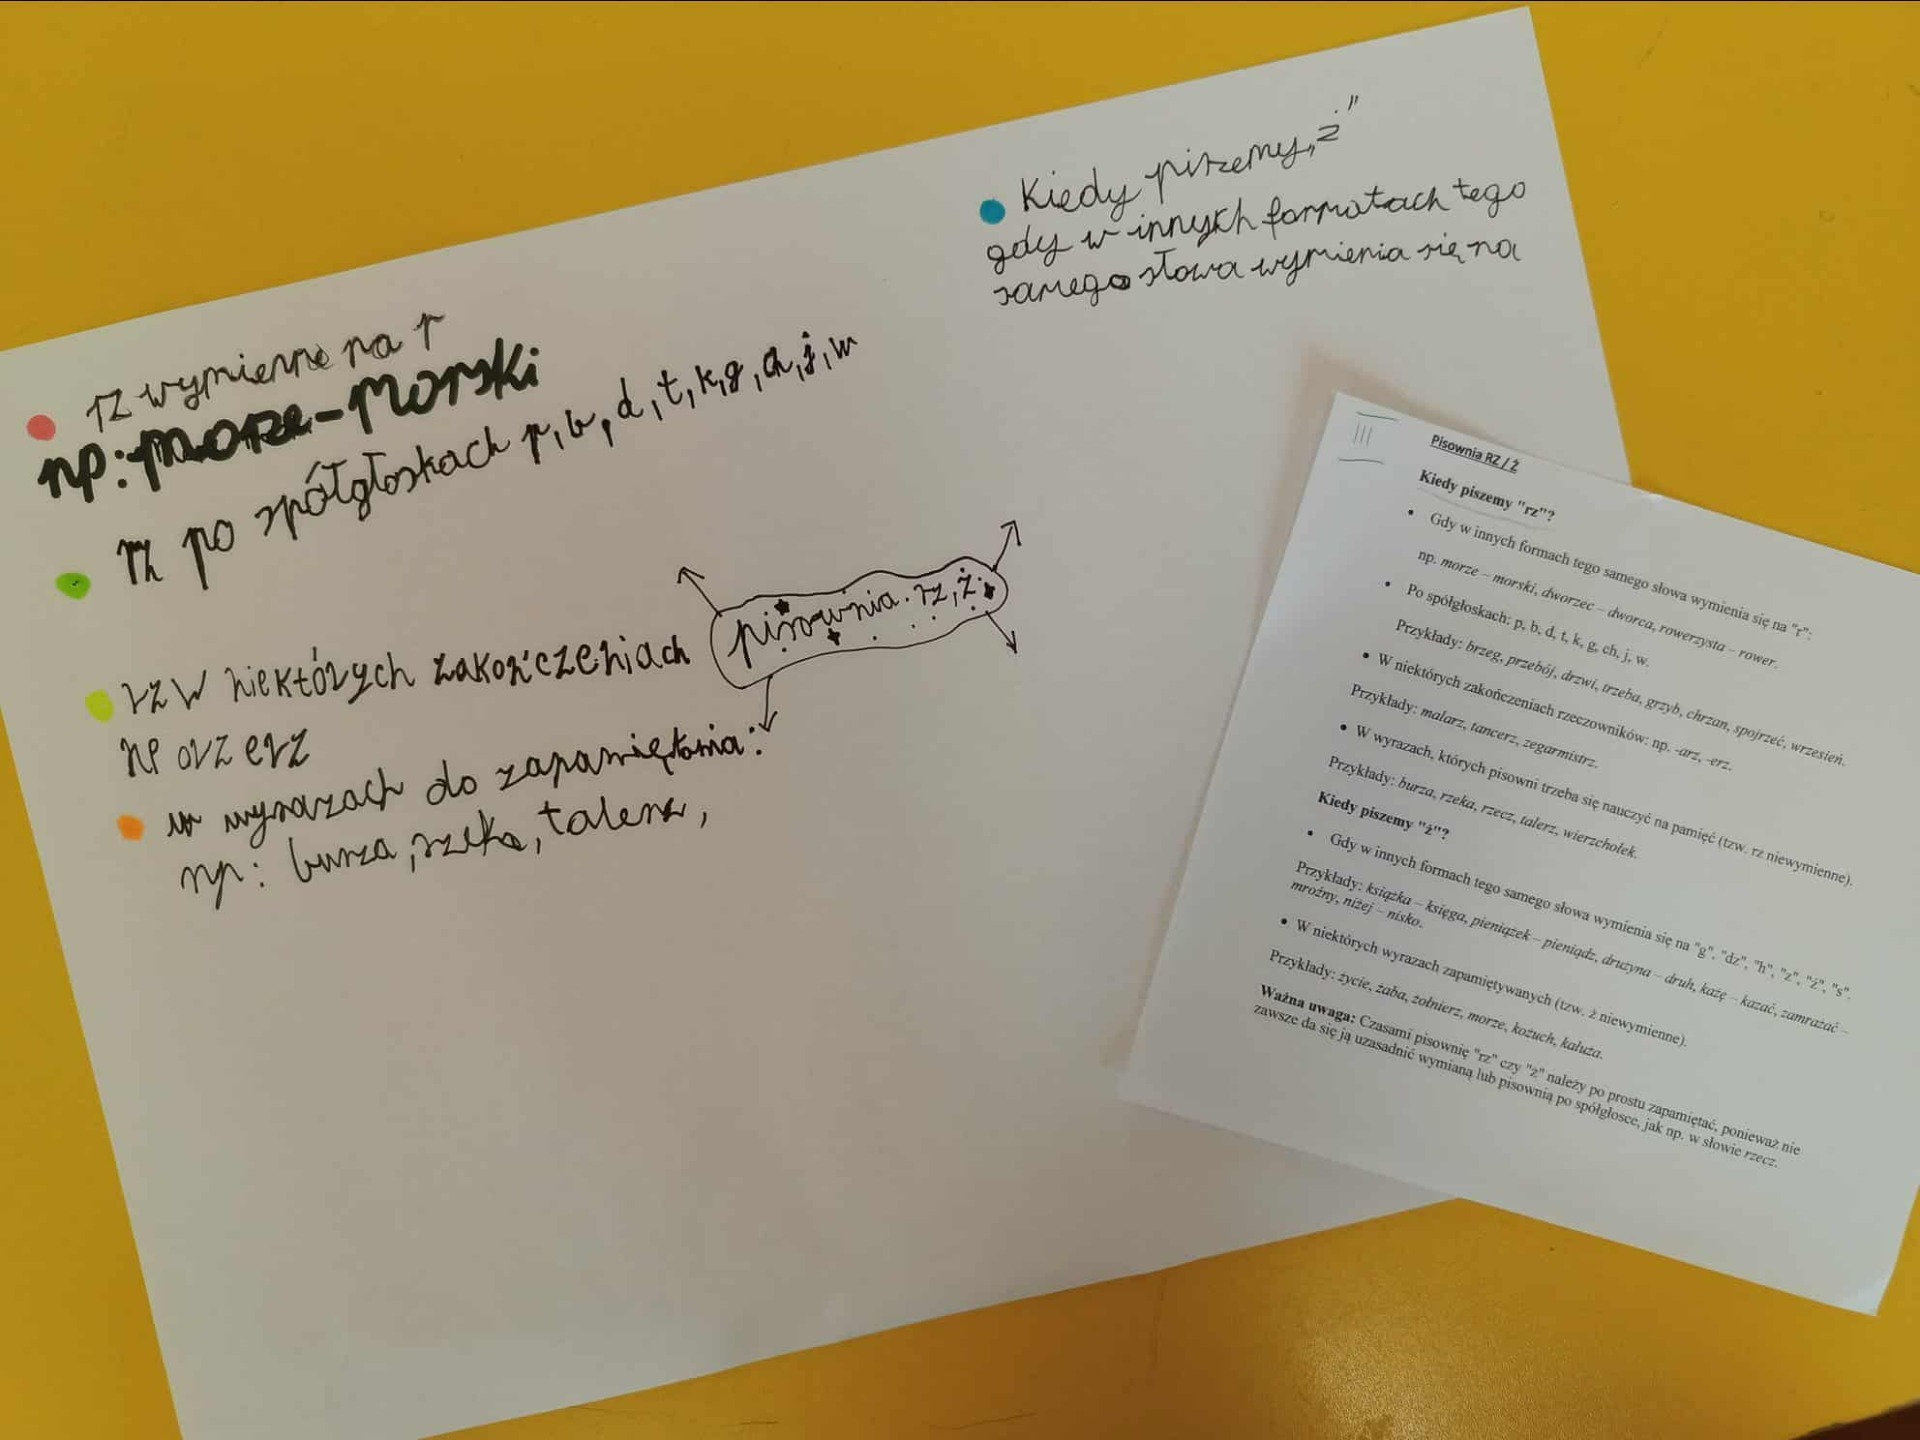 rz wymienne na r
np: morze - morski
rz po spółgłoskach p, b, d, t, k, g, ch, j, w
pisownia rz, ż
rz w niektórych zakończeniach
np arz erz
w wyrazach do zapamiętania:
np: burza, rzeka, talerz,
Kiedy piszemy „ż"
gdy w innych formatach tego
samego słowa wymienia się na
III
Pisownia RZ / Ż
Kiedy piszemy "rz"?
• Gdy w innych formach tego samego słowa wymienia się na "r":
np. morze – morski, dworzec – dworca, rowerzysta – rower.
• Po spółgłoskach: p, b, d, t, k, g, ch, j, w.
Przykłady: brzeg, przebój, drzwi, trzeba, grzyb, chrzan, spojrzeć, wrzesień.
• W niektórych zakończeniach rzeczowników: np. -arz, -erz.
Przykłady: malarz, tancerz, zegarmistrz.
• W wyrazach, których pisowni trzeba się nauczyć na pamięć (tzw. rz niewymienne).
Przykłady: burza, rzeka, rzecz, talerz, wierzchołek.
Kiedy piszemy "ż"?
• Gdy w innych formach tego samego słowa wymienia się na "g", "dz", "h", "z", "ź", "s".
Przykłady: książka – księga, pieniążek – pieniądz, drużyna – druh, każę – kazać, zamrażać –
mroźny, niżej – nisko.
• W niektórych wyrazach zapamiętywanych (tzw. ż niewymienne).
Przykłady: życie, żaba, żołnierz, morze, kożuch, kałuża.
Ważna uwaga: Czasami pisownię "rz" czy "ż" należy po prostu zapamiętać, ponieważ nie
zawsze da się ją uzasadnić wymianą lub pisownią po spółgłosce, jak np. w słowie rzecz.